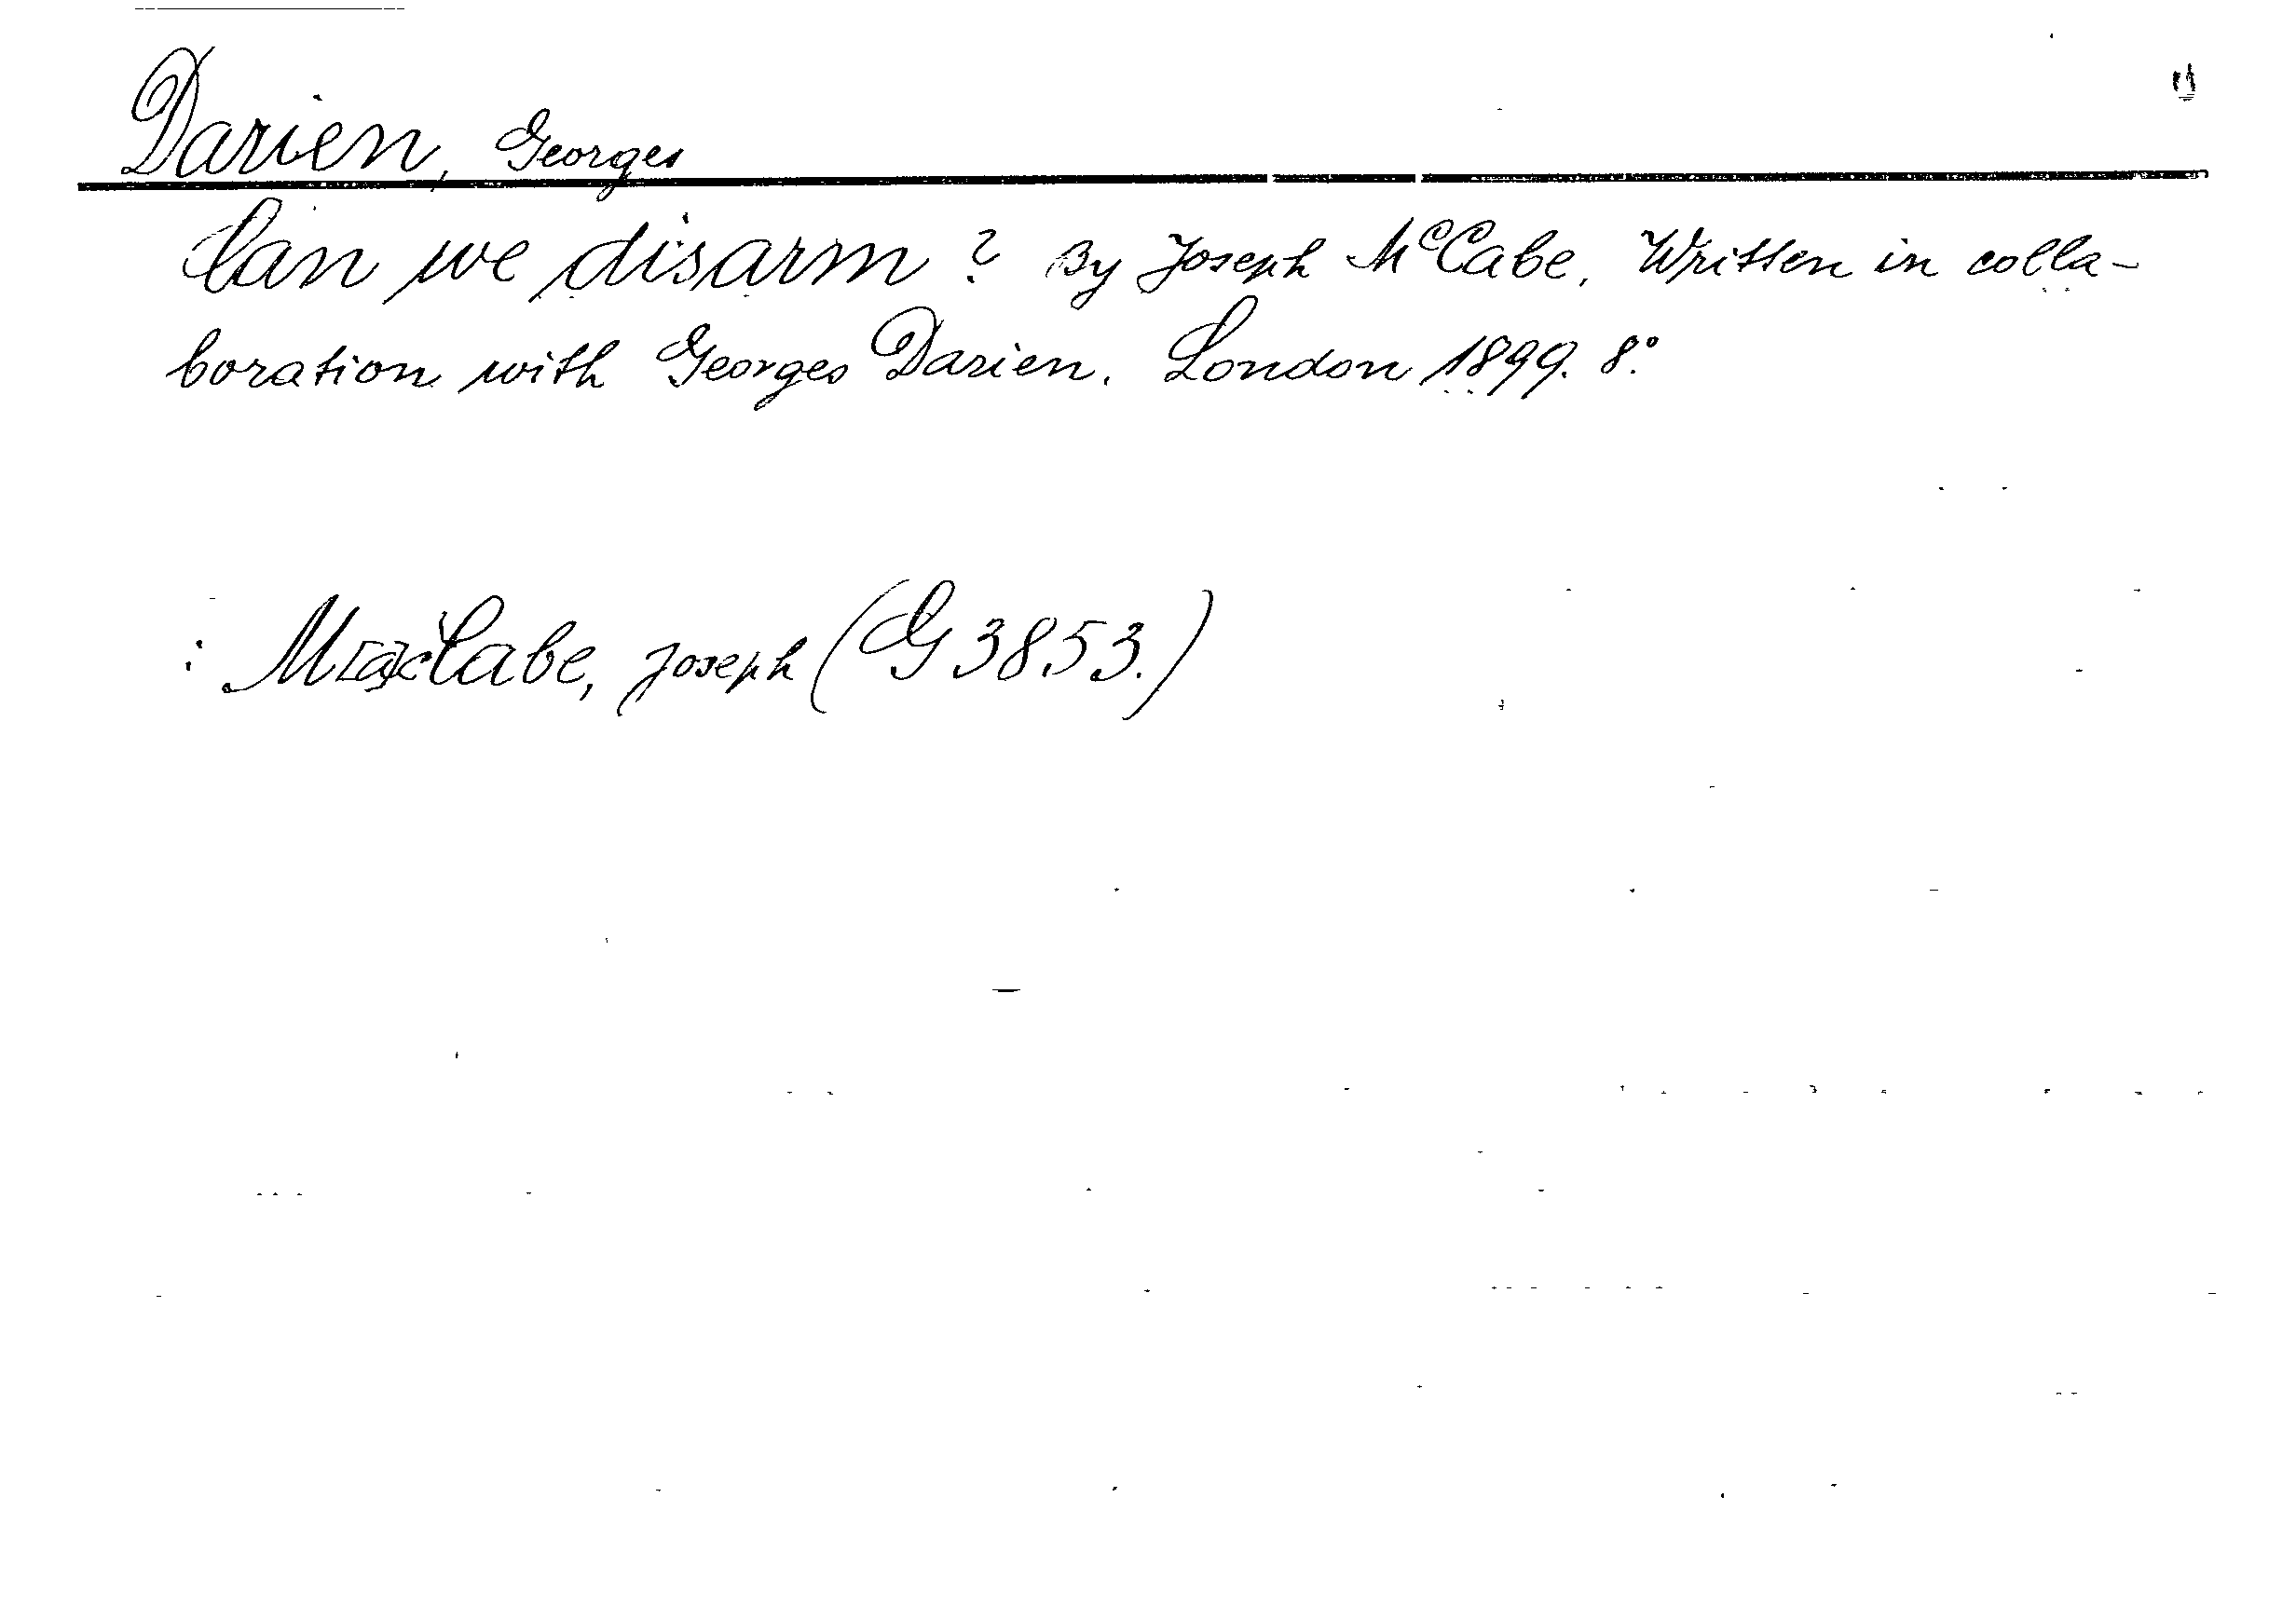 Darien, Georges
Can we disarm? By Joseph McCabe. Written in colla-
boration with Georges Darien. London 1899. 8°.
: M[a]cCabe, Joseph (G 3853.)